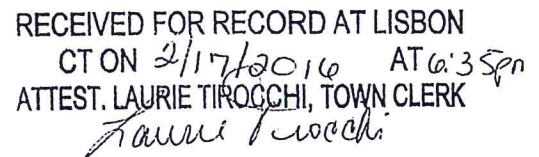 RECEIVED FOR RECORD AT LISBON
CT ON 2/17/2016 AT 6:35pm
ATTEST. LAURIE TIROCCHI, TOWN CLERK
Laurie Tirocchi